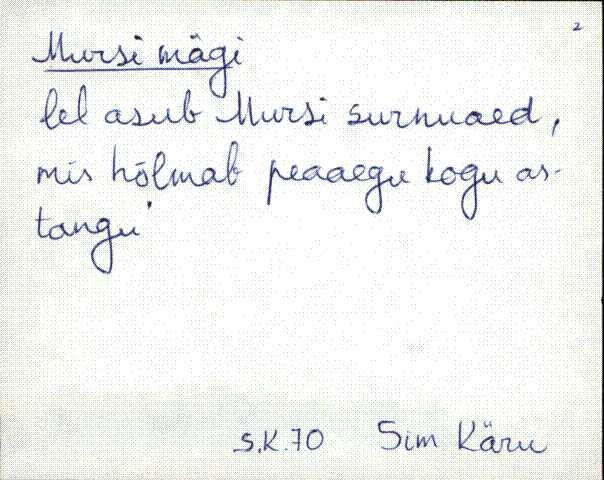 2
Mursi mägi
lel asub Mursi surnuaed,
mis hõlmab peaaegu kogu as-
tangu
S.K.70 Sim Käru